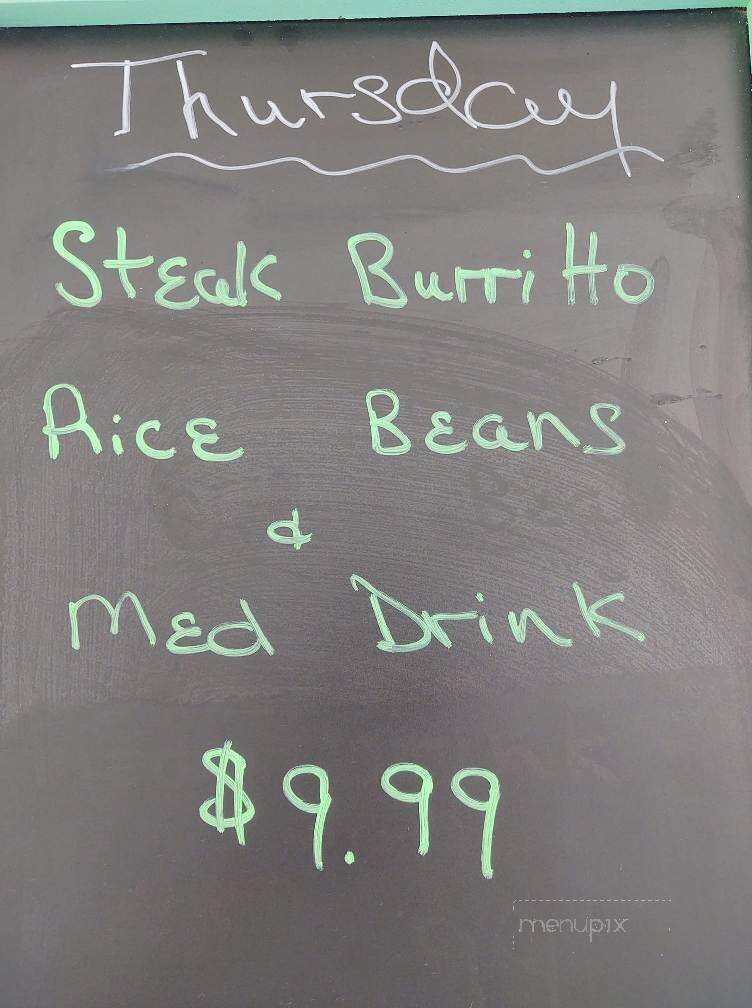 Thursday
Steak Burritto
Rice Beans
&
Med Drink
$9.99
menupix